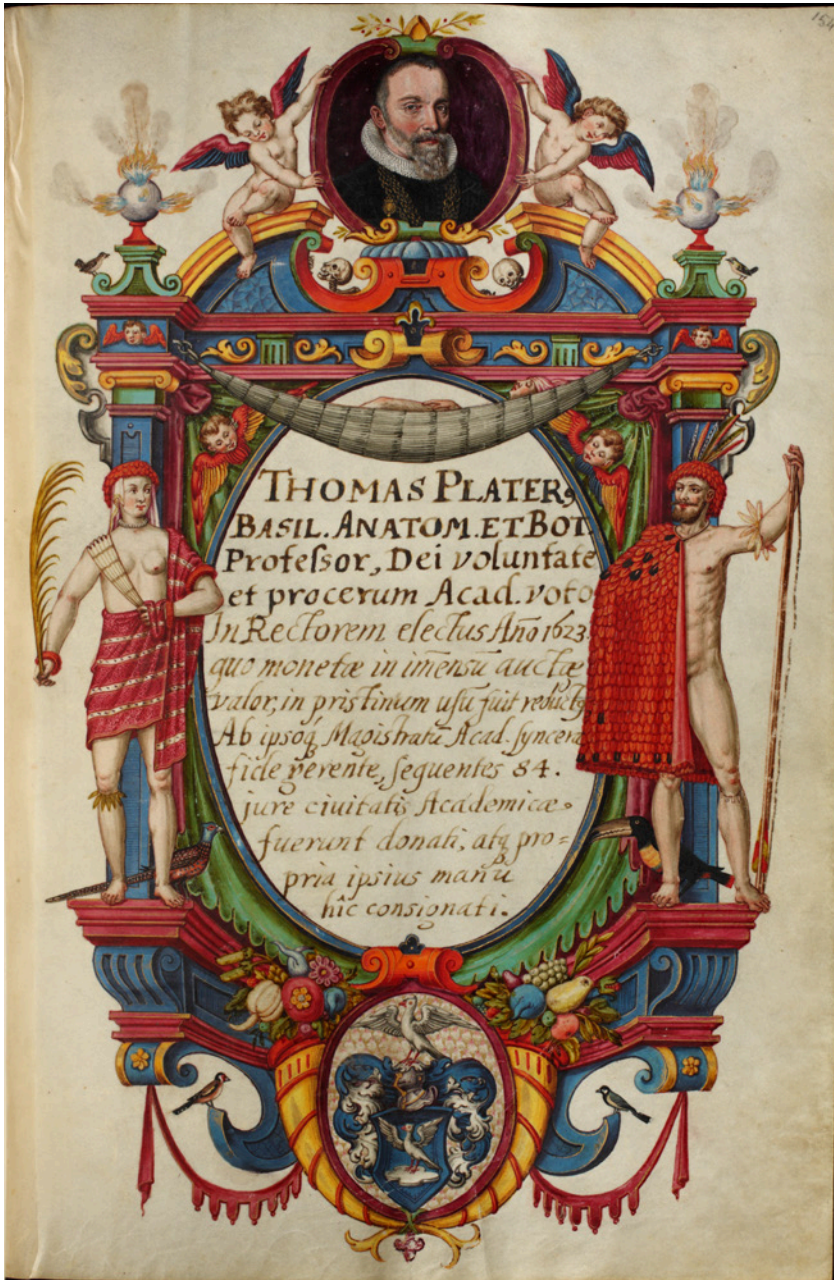 154
THOMAS PLATERꝰ
BASIL. ANATOM. ET BOT.
Profeſsor, Dei voluntate
et procerum Acad. voto
In Rectorem electus Año 1623.
quo monetæ in im̄ensū auctæ
valor, in pristinum usū fuit reductꝰ
Ab ipsoq̨ Magistratū Acad. ſyncera
fide gerente, ſequentes 84.
jure civitatis Academicæ
fuerunt donati, atq̨ pro=
pria ipsius manū
hîc consignati.